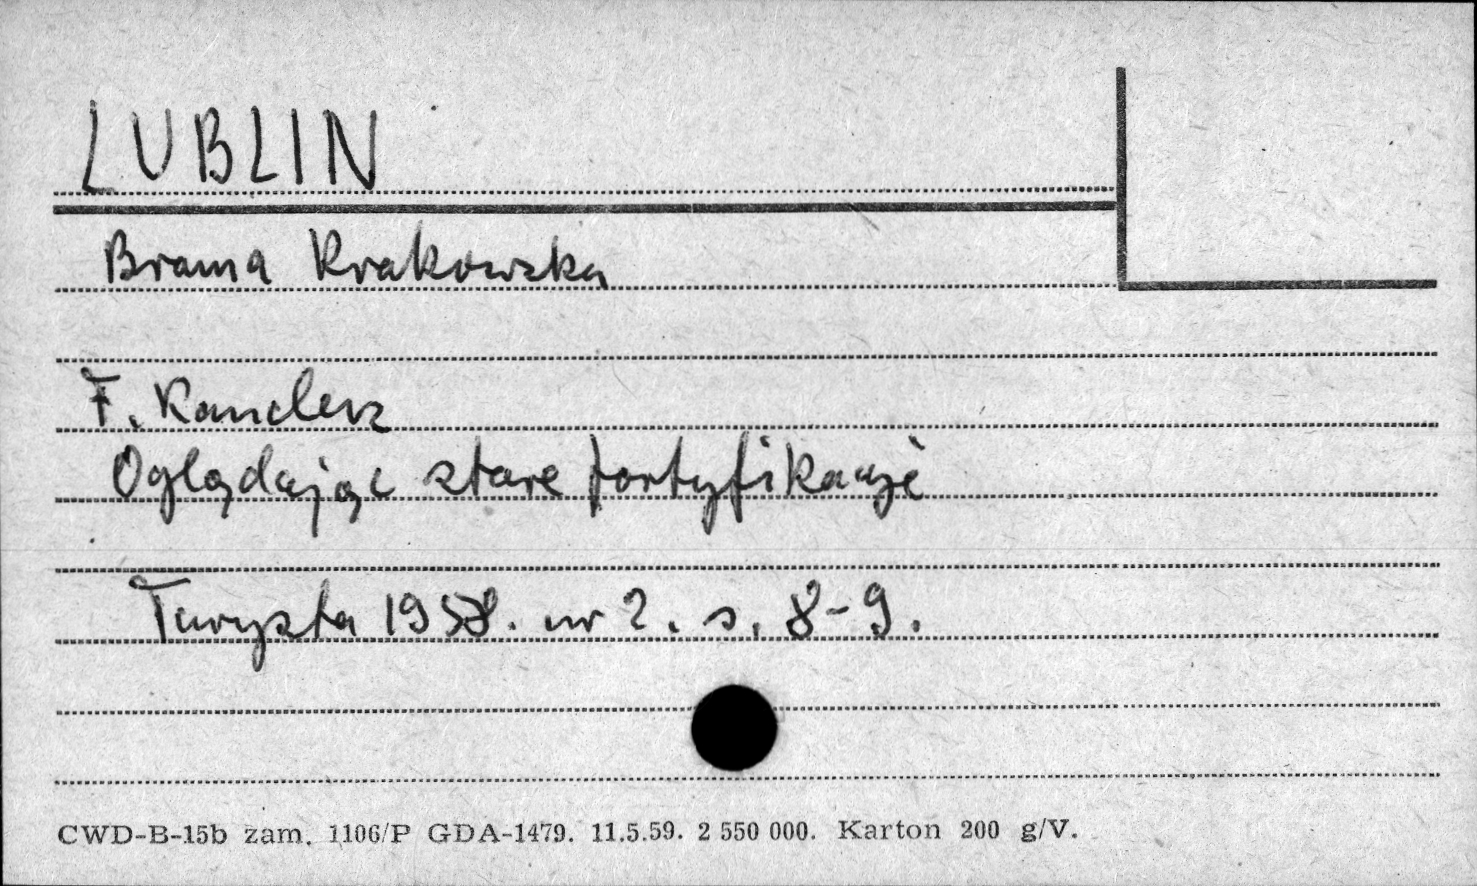 LUBLIN
Brama Krakowska
F. Kanclerz
Oglądając stare fortyfikacje
Turysta 1958. nr 2. s. 8-9.
CWD-B-15b zam. 1106/P GDA-1479. 11.5.59. 2 550 000. Karton 200 g/V.